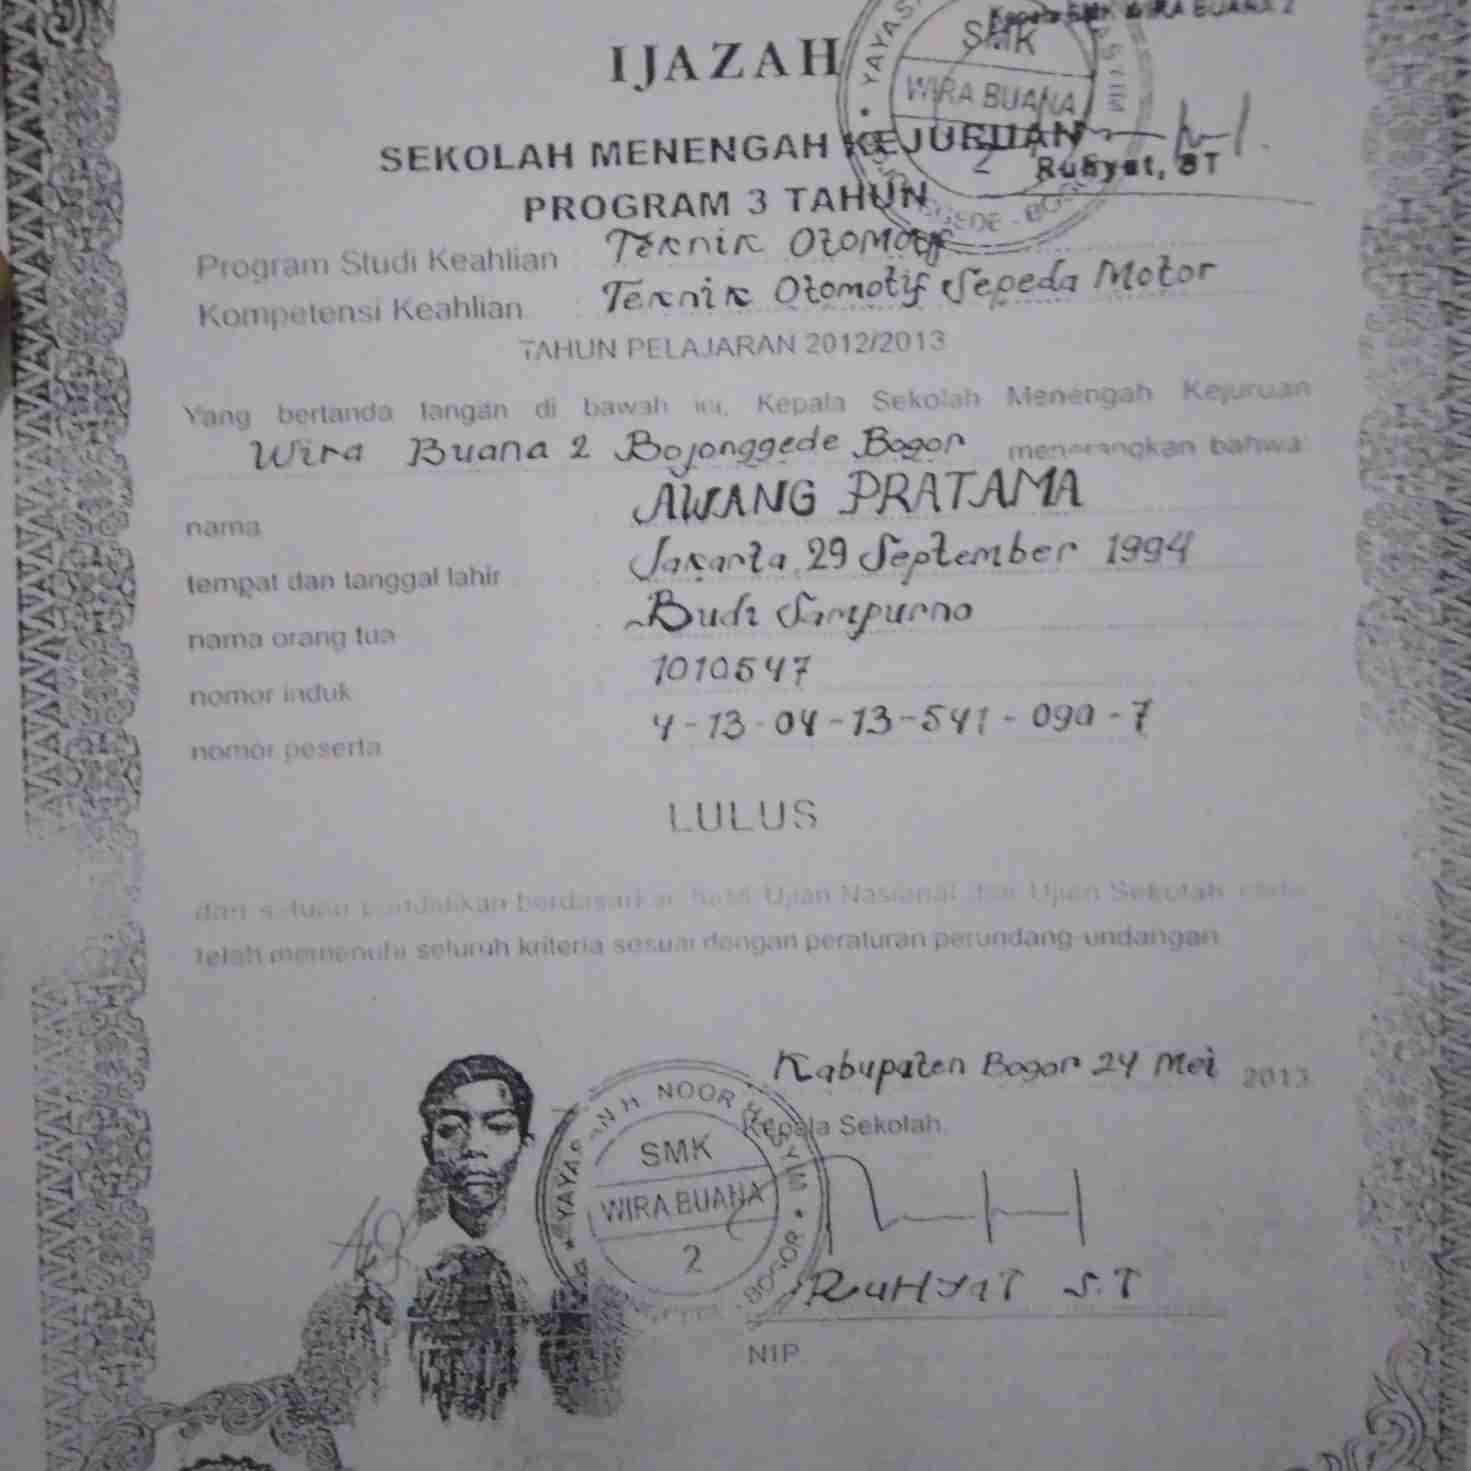 Kepala SMK WIRA BUANA 2
IJAZAH
SMK
WIRA BUANA
2
SEKOLAH MENENGAH KEJURUAN
Ruhyat, ST
PROGRAM 3 TAHUN
Program Studi Keahlian : Teknik Otomotif
Kompetensi Keahlian : Teknik Otomotif Sepeda Motor
TAHUN PELAJARAN 2012/2013
Yang bertanda tangan di bawah ini, Kepala Sekolah Menengah Kejuruan
Wira Buana 2 Bojonggede Bogor menerangkan bahwa:
nama : AWANG PRATAMA
tempat dan tanggal lahir : Jakarta, 29 September 1994
nama orang tua : Budi Sampurno
nomor induk 1010547
nomor peserta 4-13-04-13-541-090-7
LULUS
dari satuan pendidikan berdasarkan hasil Ujian Nasional dan Ujian Sekolah serta
telah memenuhi seluruh kriteria sesuai dengan peraturan perundang-undangan
Kabupaten Bogor 24 Mei 2013
Kepala Sekolah,
NOOR HASYIM
SMK
WIRA BUANA
2
BOGOR
RUHYAT S.T
NIP